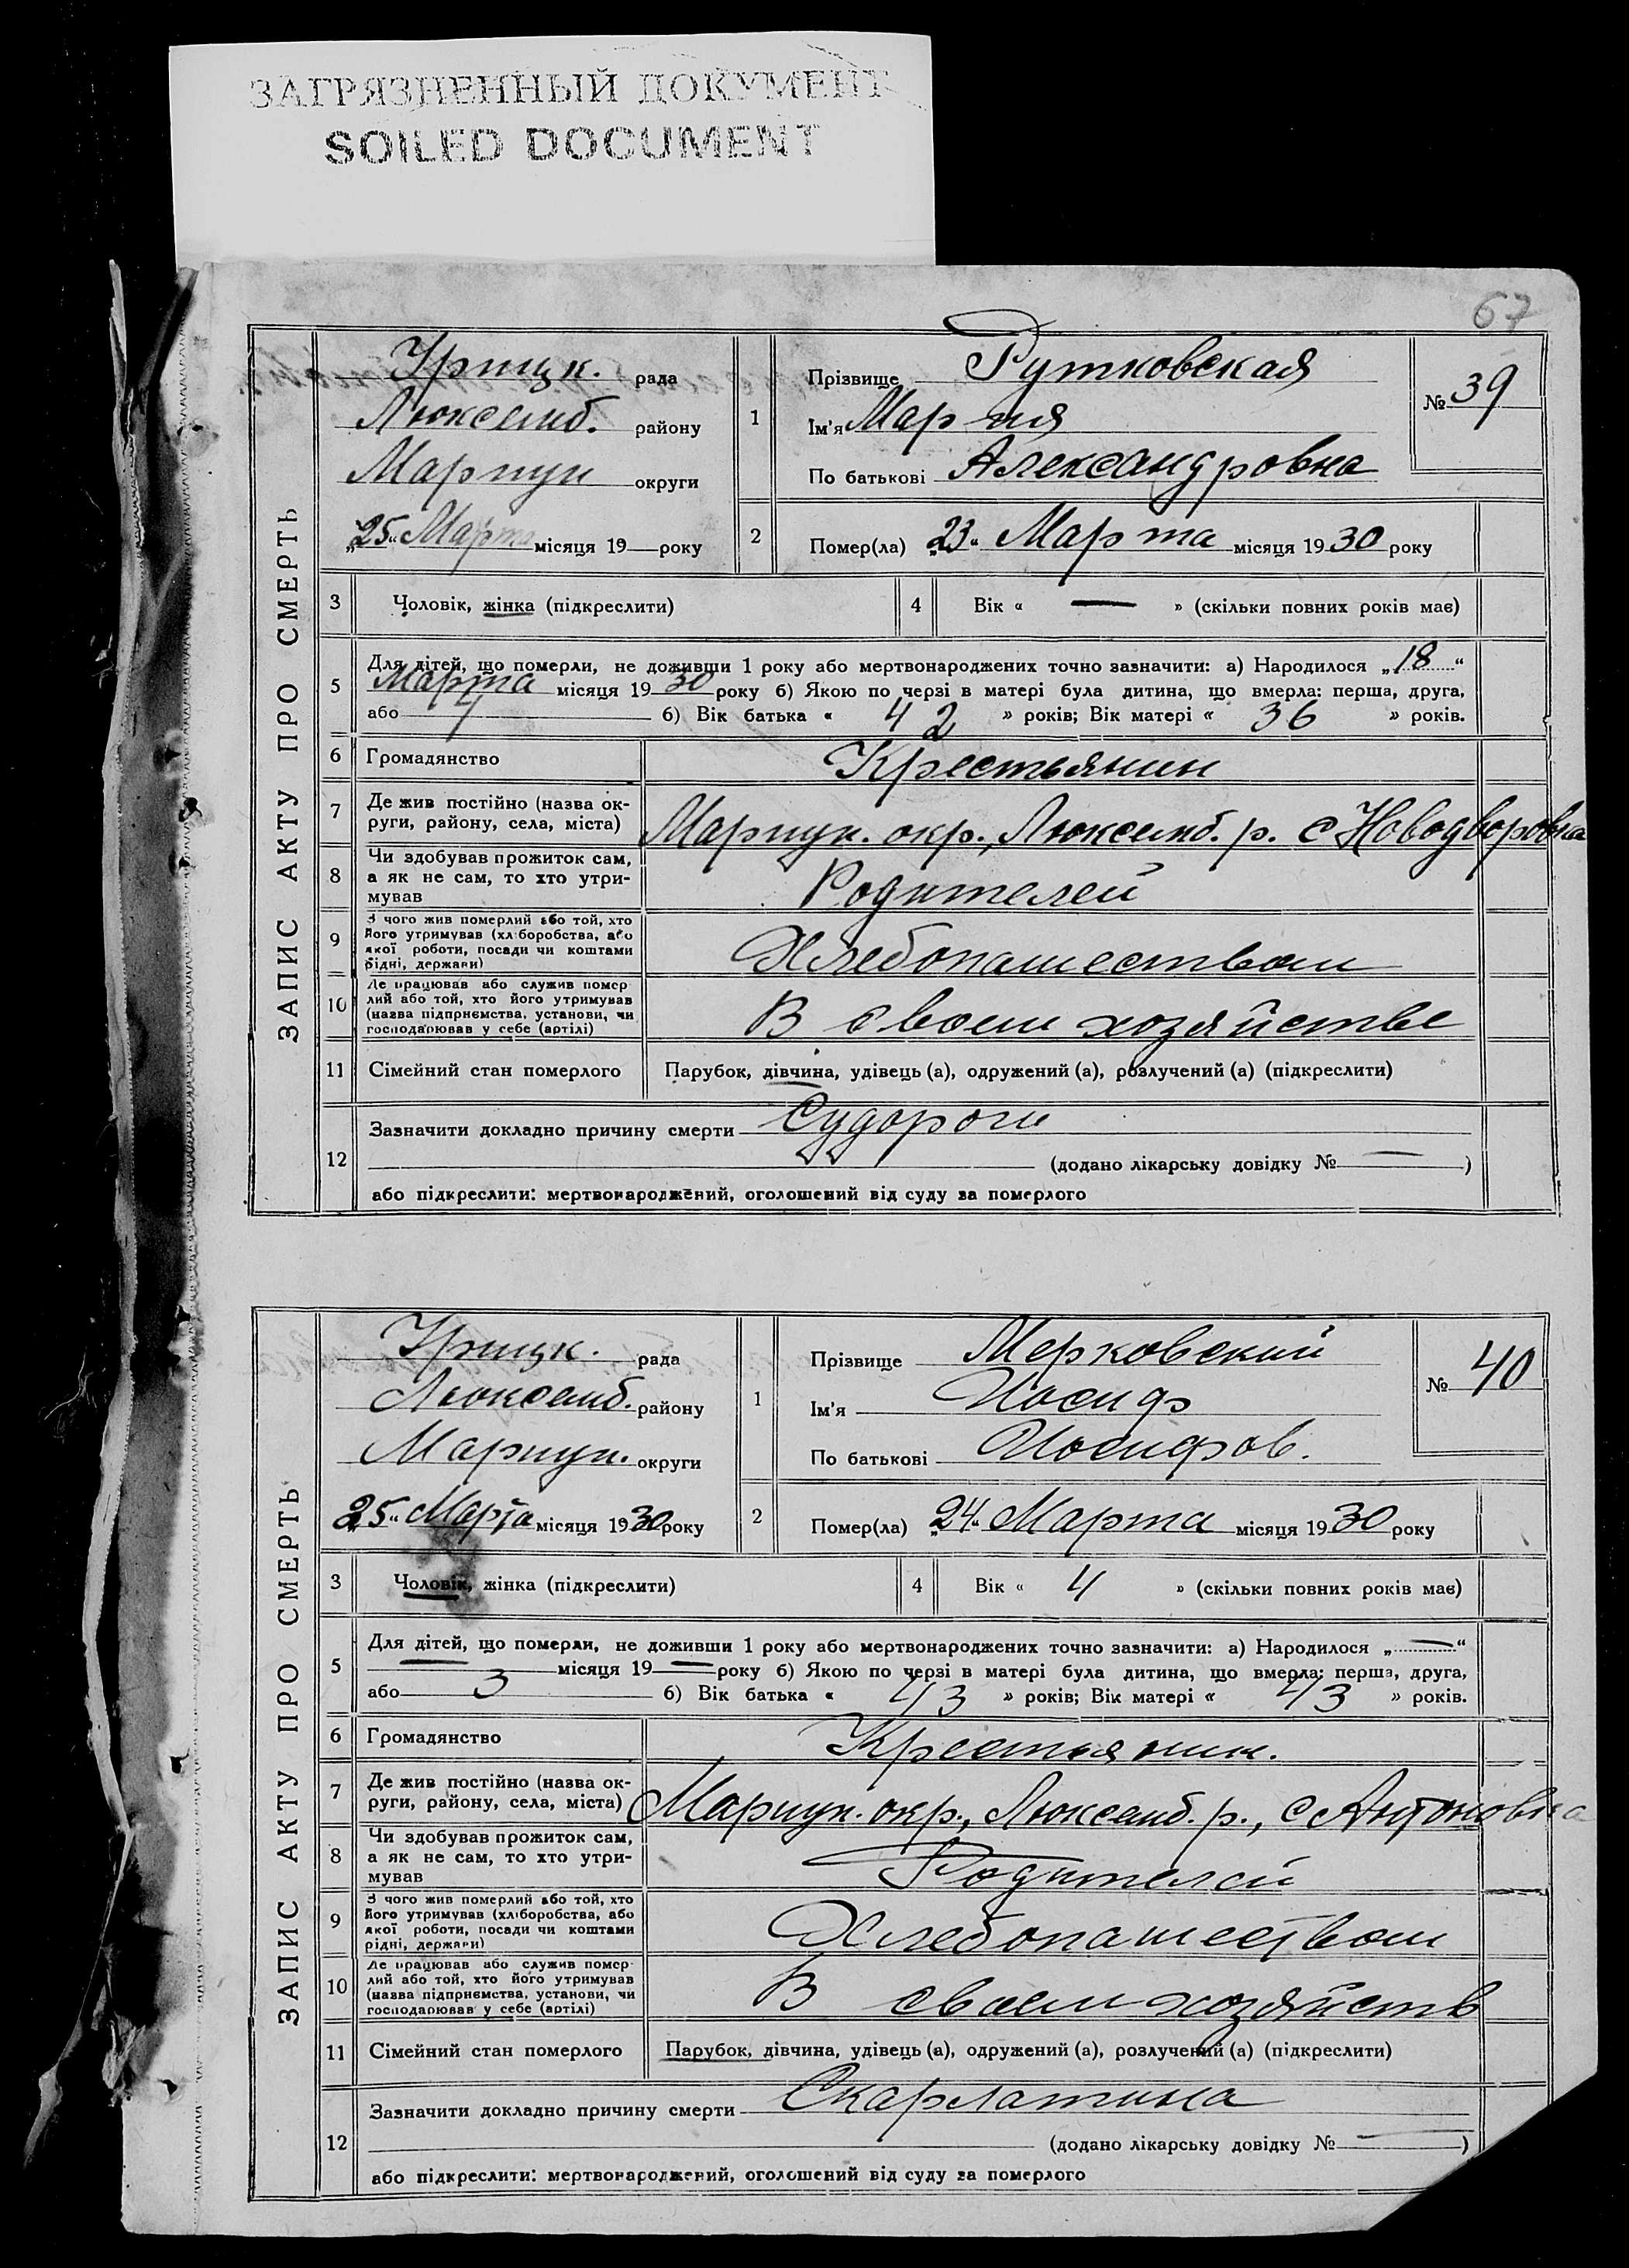 ЗАГРЯЗНЕННЫЙ ДОКУМЕНТ
SOILED DOCUMENT
67
ЗАПИС АКТУ ПРО СМЕРТЬ
Урицк. рада
Люксемб. району
Мариуп округи
„25“ Марта місяця 19 року
1
Прізвище Рутковская
Ім'я Мария
По батькові Александровна
№ 39
2
Помер(ла) „23“ Марта місяця 1930 року
3 Чоловік, жінка (підкреслити)
4 Вік « — » (скільки повних років має)
5 Для дітей, що померли, не доживши 1 року або мертвонароджених точно зазначити: а) Народилося „18“
Марта місяця 1930 року б) Якою по черзі в матері була дитина, що вмерла: перша, друга,
або 7 б) Вік батька « 42 » років; Вік матері « 36 » років.
6 Громадянство Крестьянин
7 Де жив постійно (назва ок-
руги, району, села, міста) Мариуп. окр., Люксемб. р. с Новодворовка
8 Чи здобував прожиток сам,
а як не сам, то хто утри-
мував Родителей
9 З чого жив померлий або той, хто
його утримував (хліборобства, або
якої роботи, посади чи коштами
рідні, держави) Хлебопашеством
10 Де працював або служив помер
лий або той, хто його утримував
(назва підприємства, установи, чи
господарював у себе (артілі) В своем хозяйстве
11 Сімейний стан померлого Парубок, дівчина, удівець (а), одружений (а), розлучений (а) (підкреслити)
12 Зазначити докладно причину смерти Судороги
(додано лікарську довідку № — )
або підкреслити: мертвонароджений, оголошений від суду за померлого
ЗАПИС АКТУ ПРО СМЕРТЬ
Урицк. рада
Люксемб. району
Мариуп. округи
„25“ Марта місяця 1930 року
1
Прізвище Мерковский
Ім'я Иосиф
По батькові Иосифов.
№ 40
2
Помер(ла) „24“ Марта місяця 1930 року
3 Чоловік, жінка (підкреслити)
4 Вік « 4 » (скільки повних років має)
5 Для дітей, що померли, не доживши 1 року або мертвонароджених точно зазначити: а) Народилося „—“
— місяця 19— року б) Якою по черзі в матері була дитина, що вмерла: перша, друга,
або 3 б) Вік батька « 43 » років; Вік матері « 43 » років.
6 Громадянство Крестьянин.
7 Де жив постійно (назва ок-
руги, району, села, міста) Мариуп. окр., Люксемб. р., с Антоновка
8 Чи здобував прожиток сам,
а як не сам, то хто утри-
мував Родителей
9 З чого жив померлий або той, хто
його утримував (хліборобства, або
якої роботи, посади чи коштами
рідні, держави) Хлебопашеством
10 Де працював або служив помер
лий або той, хто його утримував
(назва підприємства, установи, чи
господарював у себе (артілі) В своем хозяйств
11 Сімейний стан померлого Парубок, дівчина, удівець (а), одружений (а), розлучений (а) (підкреслити)
12 Зазначити докладно причину смерти Скарлатина
(додано лікарську довідку № — )
або підкреслити: мертвонароджений, оголошений від суду за померлого